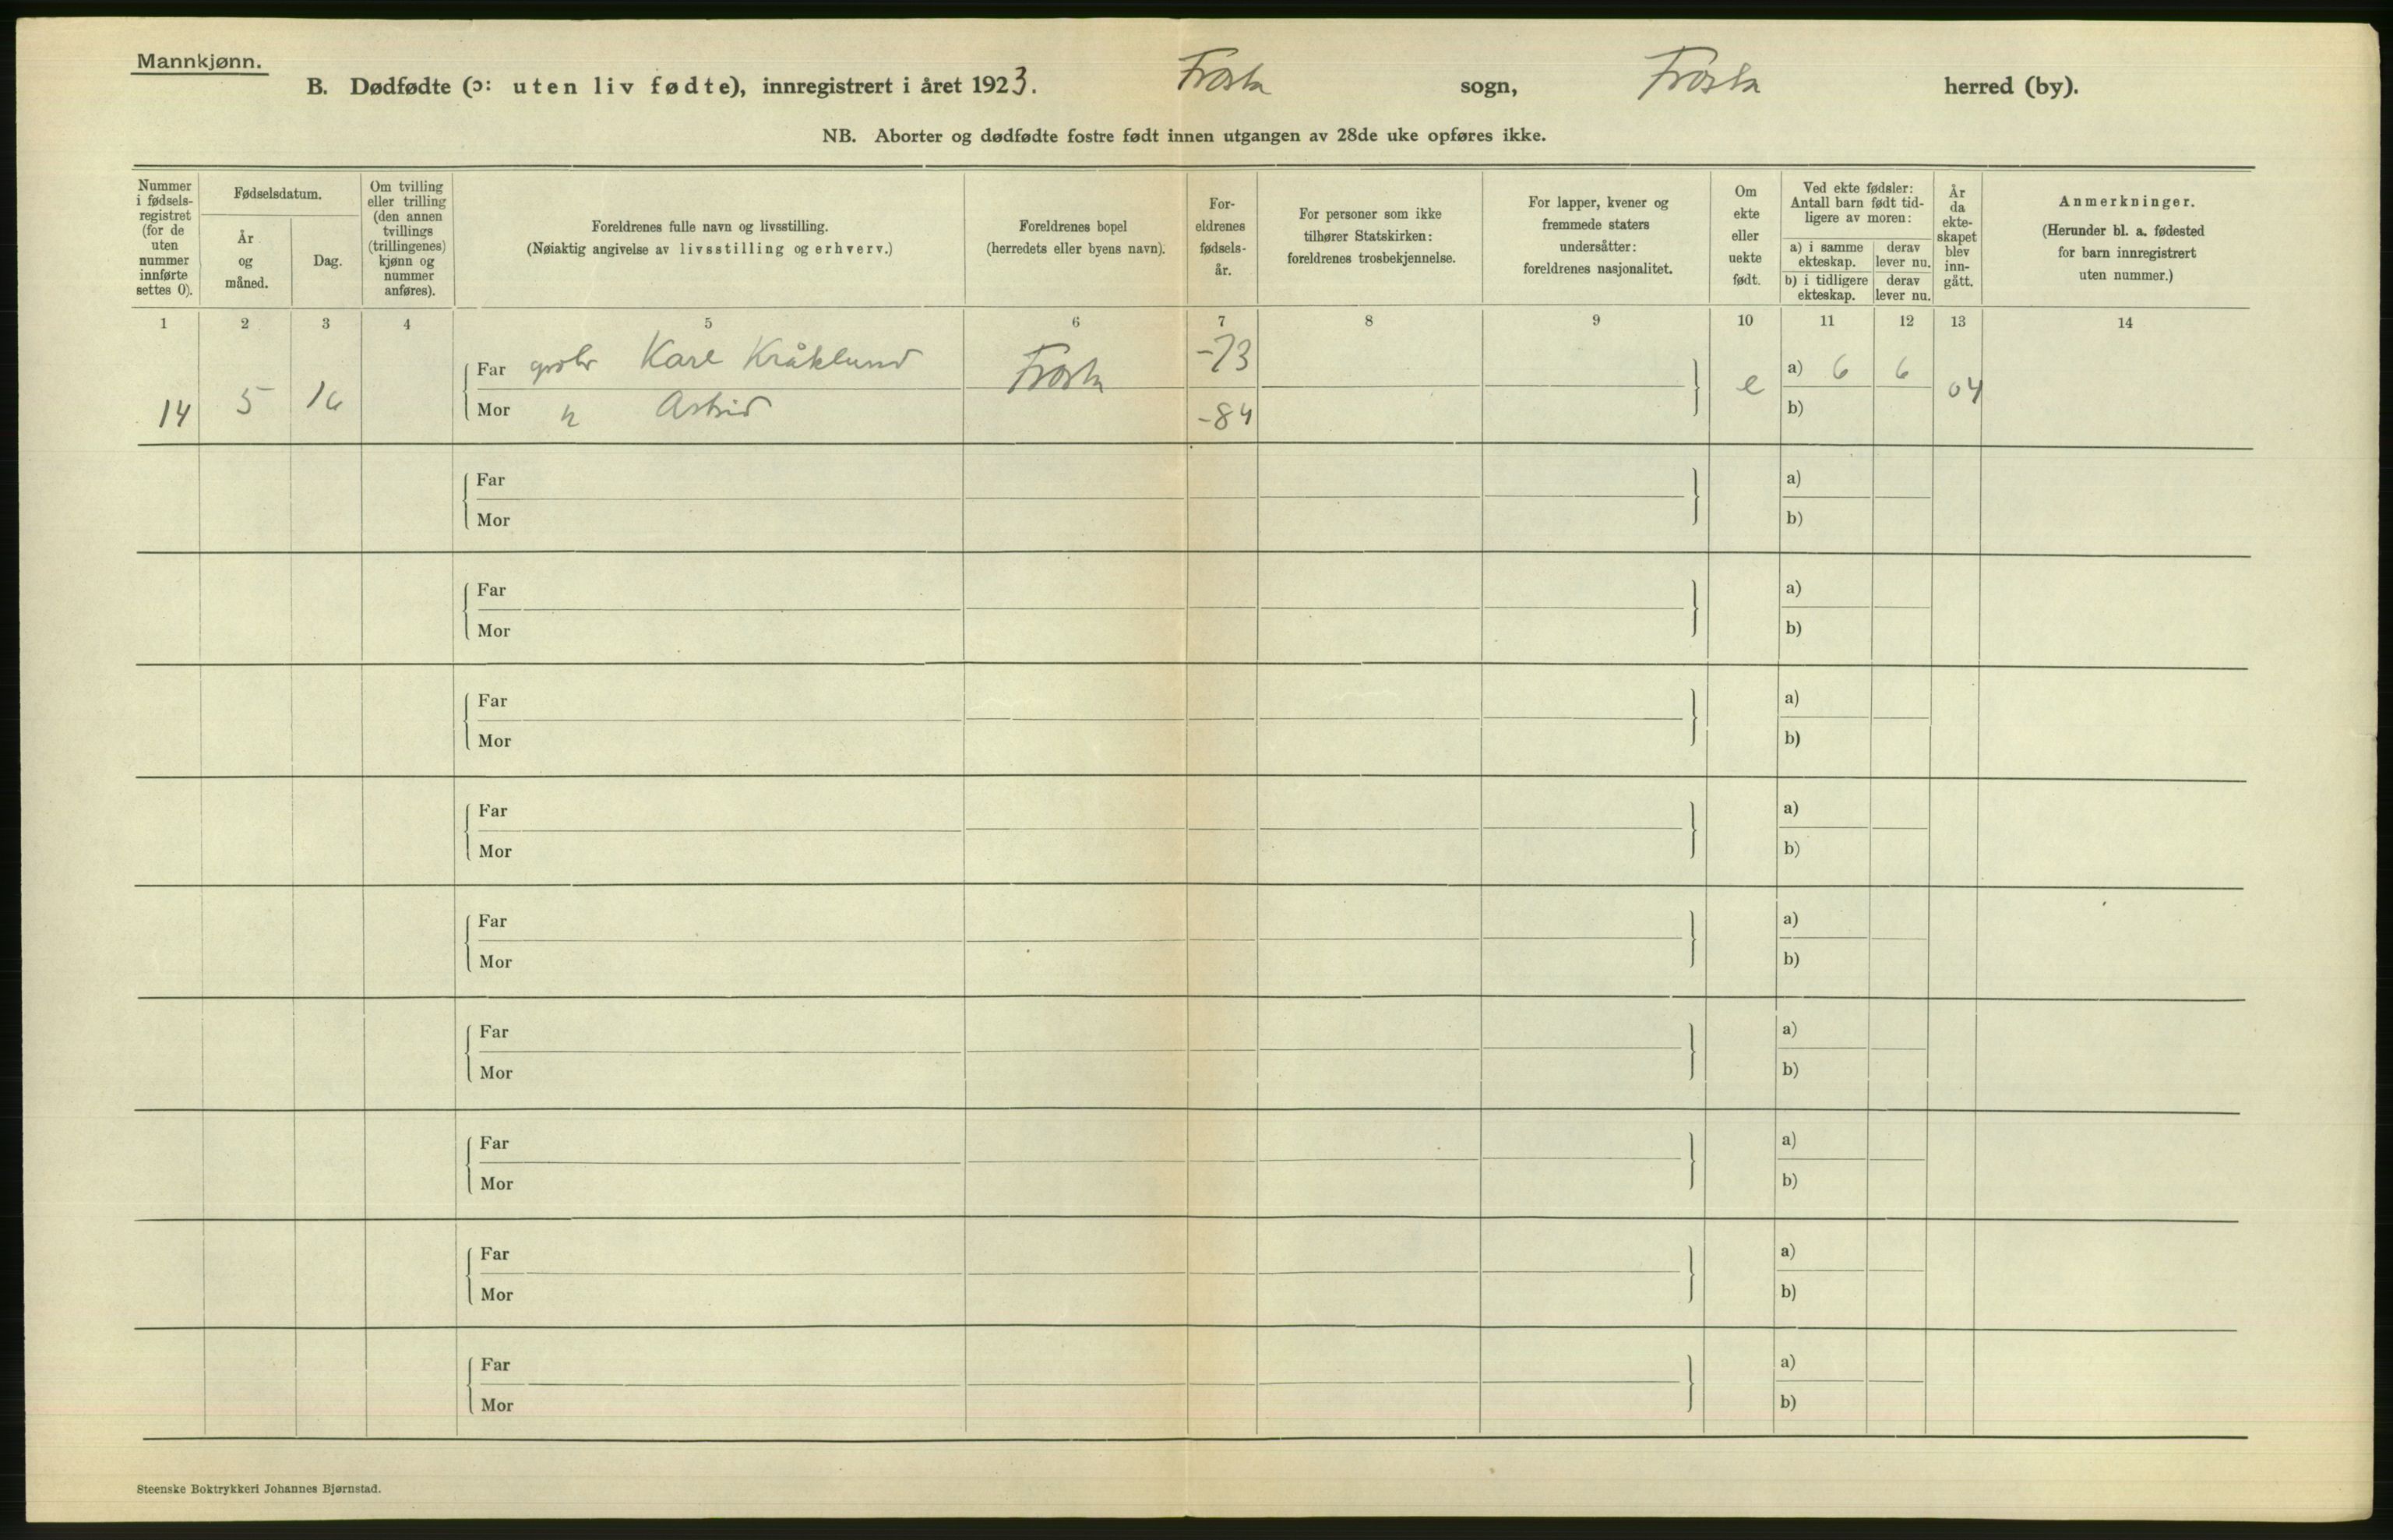 Mannkjønn.
B. Dødfødte (ɔ: uten liv fødte), innregistrert i året 1923. Frosta sogn, Frosta herred (by).
NB. Aborter og dødfødte fostre født innen utgangen av 28de uke opføres ikke.
Nummer i fødsels-registret (for de uten nummer innførte settes 0).
Fødselsdatum.
År og måned.
Dag.
Om tvilling eller trilling (den annen tvillings (trillingenes) kjønn og nummer anføres).
Foreldrenes fulle navn og livsstilling.
(Nøiaktig angivelse av livsstilling og erhverv.)
Foreldrenes bopel
(herredets eller byens navn).
For-eldrenes fødsels-år.
For personer som ikke tilhører Statskirken: foreldrenes trosbekjennelse.
For lapper, kvener og fremmede staters undersåtter: foreldrenes nasjonalitet.
Om ekte eller uekte født.
Ved ekte fødsler: Antall barn født tid-ligere av moren:
a) i samme ekteskap. derav lever nu.
b) i tidligere ekteskap. derav lever nu.
År da ekte-skapet blev inn-gått.
Anmerkninger.
(Herunder bl. a. fødested for barn innregistrert uten nummer.)
1 2 3 4 5 6 7 8 9 10 11 12 13 14
14 5 16 Far Karl Kråklund Frosta -73 e a) 6 6 04
Mor h Astrid -84 b)
Far a)
Mor b)
Far a)
Mor b)
Far a)
Mor b)
Far a)
Mor b)
Far a)
Mor b)
Far a)
Mor b)
Far a)
Mor b)
Far a)
Mor b)
Far a)
Mor b)
Steenske Boktrykkeri Johannes Bjørnstad.